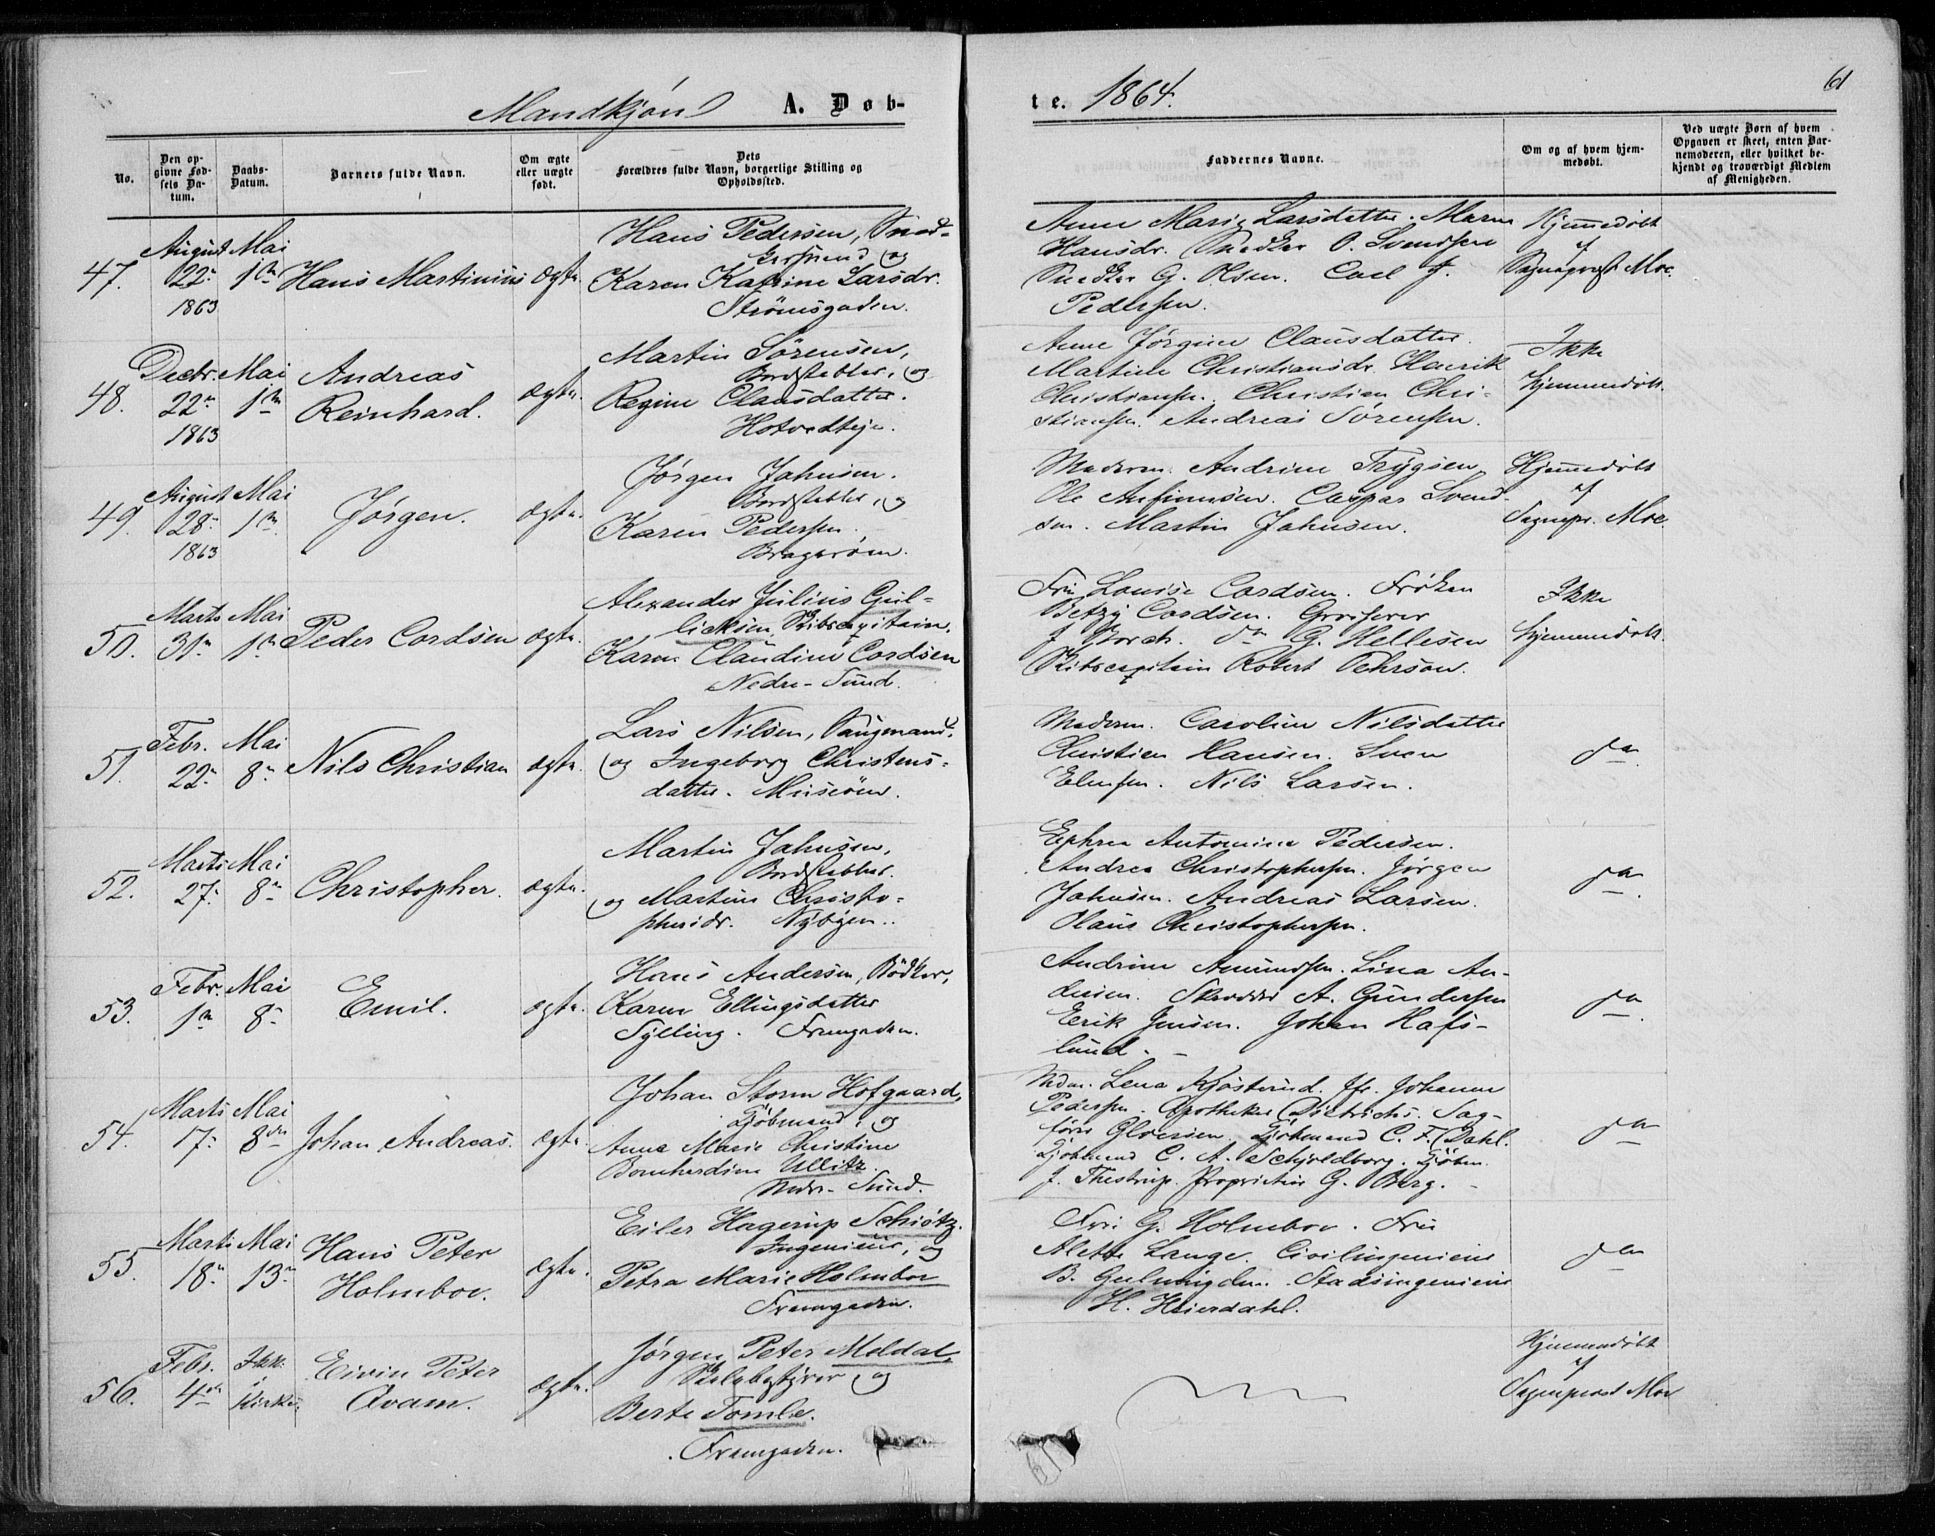 Mandkjøn A. Døb-
te. 1864.
61
No.
Den op-
givne Fød-
sels Da-
tum.
Daabs-
Datum.
Barnets fulde Navn.
Om ægte
eller uægte
født.
Dets
Forældres fulde Navn, borgerlige Stilling og
Opholdssted.
Faddernes Navne.
Om og af hvem hjem-
medøbt.
Ved uægte Børn af hvem
Opgaven er skeet, enten Bar-
nemoderen, eller hvilket be-
kjendt og troværdigt Medlem
af Menigheden.
47.
August
22
1863
Mai
1
Hans Martinius
ægte.
Hans Pedersen, Sned-
kersvend og
Karen Katrine Larsdr.
Strømsgaden.
Anne Marie Larsdatter. Maren
Hansdr. Snedker O. Svendsen
Snedker G. Olsen. Carl J.
Pedersen.
Hjemmedøbt
af
Sognepræst Moe.
48.
Decbr.
22
1863
Mai
1
Andreas
Reinhard.
ægte.
Martin Sørensen,
Bordstabler, og
Regine Clausdatter.
Hotvedteje.
Anne Jørgine Clausdatter.
Martine Christiansdr. Henrik
Christiansen. Christian Chri-
stiansen. Andreas Sørensen.
Ikke
hjemmedøbt.
49.
August
28
1863
Mai
1
Jørgen.
ægte.
Jørgen Jahnsen.
Bordstabler, og
Karen Pedersen.
Bragerøen.
Moderen. Andrine Trygsen,
Ole Anfinnsen. Caspar Svend-
sen. Martin Jahnsen.
Hjemmedøbt
af
Sognepr. Moe
50.
Marts
31
Mai
1
Peder Cordsen
ægte.
Alexander Julius Gul-
licksen, Skibscapitain.
Karen Claudine Cordsen
Nedre-Sund.
Fru Louise Cordsen. Frøken
Betzy Cordsen. Grosserer
J. Borch. do G. Hellesen
Skibscapitain Robert Pehrson.
Ikke
hjemmedøbt.
51.
Febr.
22
Mai
8
Nils Christian
ægte.
Lars Nilsen, Saugmand,
og Ingeborg Christens-
datter. Museøen.
Moderen. Caroline Nilsdatter
Christian Hansen. Sven
Nils Larsen.
do
52.
Marts
27
Mai
8
Christopher.
ægte.
Martin Jahnsen,
Bordstabler.
og Martine Christo-
phersdr. Nybyen.
Antomine Pedersen.
Andrea Christophersen. Jørgen
Jahnsen. Andreas Larsen.
Olaus Christophersen.
do
53.
Febr.
1
Mai
8
Emil.
ægte.
Hans Andersen, Bødker,
Karen Ellingsdatter
Sylling. Framgaden.
Andrine Amundsen. Lina An-
dersen. Skrædder A. Gundersen
Eerik Jensen. Johan Hafs-
lund.
do
54.
Marts
17
Mai
8de
Johan Andreas.
ægte.
Johan Storm Hofgaard,
Kjøbmand, og
Anna Marie Christine
Bomherdine Ullitz.
Nedre-Sund.
Mdm. Lena Kjøsterud. Jfr. Johanne
Pedersen. Apotheker Dietrichs. Sag-
fører Gloersen. Kjøbmand C. F. Dahl.
Kjøbmand C. A. Schjoldborg. Kjøbm.
J. Thestrup. Proprietær G. Berg.
do
55.
Marts
18
Mai
13
Hans Peter
Holmboe.
ægte.
Eiler Hagerup Schiøtz.
Ingenieur, og
Petra Marie Holmboe
Framgaden.
Fru G. Holmboe. Fru
Alette Lange. Civilingenieur
B. Stadsingenieur
H. Heierdahl.
do
56.
Febr.
4de
Ikke
i
Kirke.
Eivin Peter
Avam.
ægte.
Jørgen Peter Meldal,
Skolebestyrer, og
Berte Tomle.
Framgaden.
Hjemmedøbt
af
Sognepræst Moe